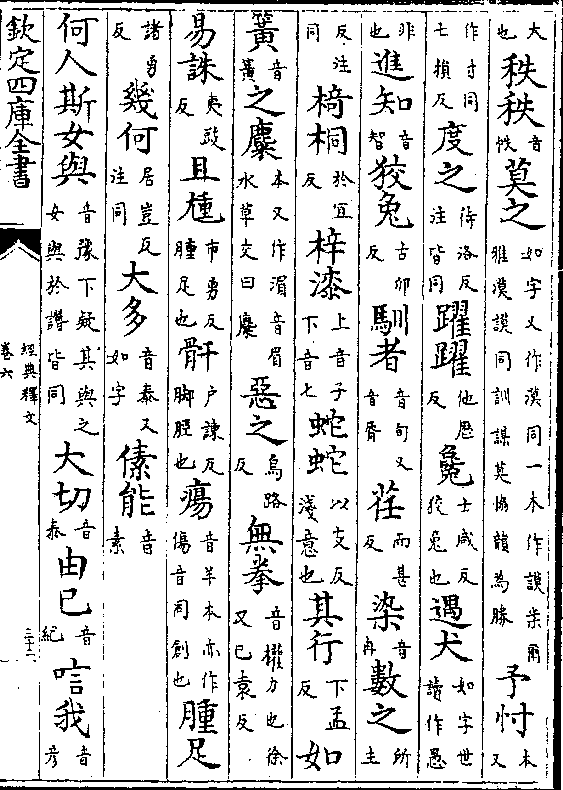 大也秩秩音帙莫之如字又作漠同一本作謨案爾雅漠謨同訓謀莫協韻為勝予忖本又
作寸同七損反度之待洛反注皆同躍躍他歷反毚士咸反狡兔也遇犬如字世讀作愚
非也進知音智狡兔古卯反馴者音旬又音脣荏而甚反染音冉數之所主
反注同椅桐於宜反梓漆上音子下音七蛇蛇以支反淺意也其行下孟反如
簧音簧之麋本又作湄音眉水草交曰麋惡之烏路反無拳音權力也徐又己袁反
易誅夷豉反且尰市勇反腫足也骭戶諫反脚脛也瘍音羊本亦作傷音同創也腫足
諸勇反幾何居豈反注同大多音泰又如字傃能音素
何人斯女與音豫下疑其與之女與於譖皆同大切音泰由己音紀唁我音彦
欽定四庫全書
經典釋文
卷六
三十二